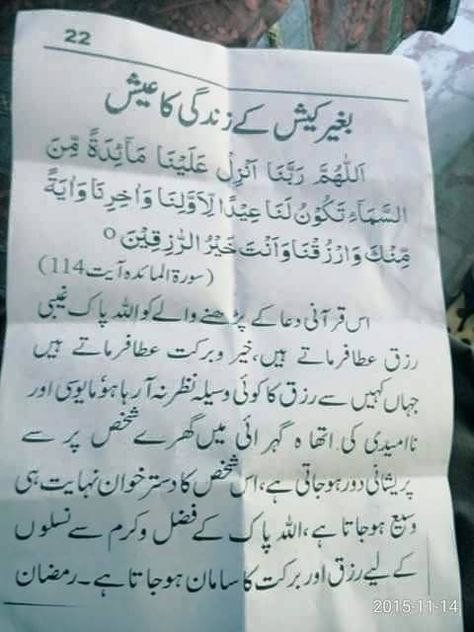 22
بغیر کیش کے زندگی کا عیش
اَللّٰهُمَّ رَبَّنَا اَنْزِلْ عَلَيْنَا مَآئِدَةً مِّنَ
السَّمَآءِ تَكُوْنُ لَنَا عِيْدًا لِّاَوَّلِنَا وَاٰخِرِنَا وَاٰيَةً
مِّنْكَ وَارْزُقْنَا وَاَنْتَ خَيْرُ الرّٰزِقِيْنَ ○
(سورۃ المائدہ آیت 114)
اس قرآنی دعا کے پڑھنے والے کو اللہ پاک غیبی
رزق عطا فرماتے ہیں، خیر و برکت عطا فرماتے ہیں
جہاں کہیں سے رزق کا کوئی وسیلہ نظر نہ آ رہا ہو مایوسی اور
ناامیدی کی اتھاہ گہرائی میں گھرے شخص پر سے
پریشانی دور ہو جاتی ہے، اس شخص کا دستر خوان نہایت ہی
وسیع ہو جاتا ہے، اللہ پاک کے فضل و کرم سے نسلوں
کے لیے رزق اور برکت کا سامان ہو جاتا ہے۔ رمضان
2015-11-14